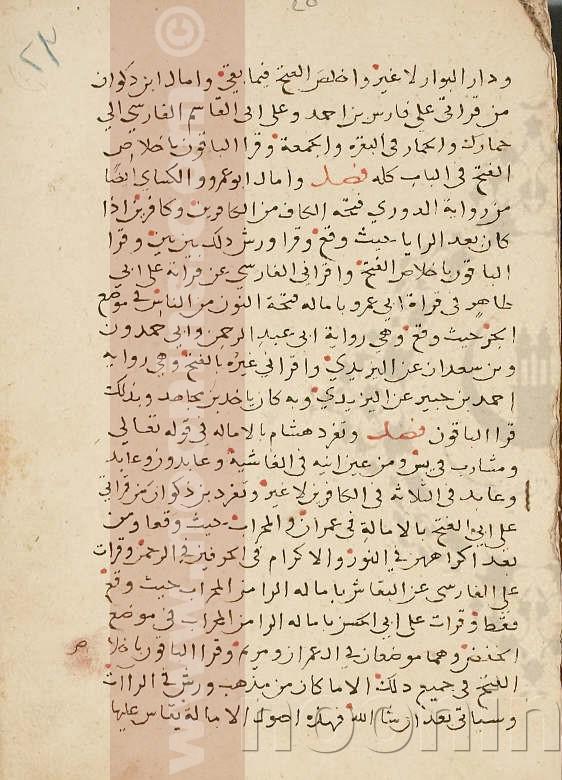 ٢٣
ودار البوار لا غير واخلص الفتح فيما بقي وامال ابن ذكوان
من قراتي على فارس بن احمد وعلى ابي القاسم الفارسي الى
حمارك والحمار في البقرة والجمعة وقرا الباقون باخلاص
الفتح في الباب كله فصل وامال ابو عمرو والكسائي ايضا
من رواية الدوري فتحة الكاف من الكافرين وكافرين اذا
كان بعد الرا يا حيث وقع وقرا ورش ذلك بين بين وقرا
الباقون باخلاص الفتح واقراني الفارسي عن قراته على ابي
طاهر في قراة ابي عمرو بامالة فتحة النون من الناس في موضع
الجر حيث وقع وهي رواية ابي عبد الرحمن وابي حمدون
وبن سعدان عن اليزيدي واقراني غيره بالفتح وهي رواية
احمد بن جبير عن اليزيدي وبه كان ياخذ بن مجاهد وبذلك
قرا الباقون فصل وتفرد هشام بالامالة في قوله تعالى
ومشارب في يس ومن عين انية في الغاشية وعابدون وعابد
وعابد في الثلاثة في الكافرين لا غير وتفرد بن ذكوان من قراتي
على ابي الفتح بالامالة في عمران والمحراب حيث وقعا ومن
بعد اكراههن في النور والاكرام في الحرفين في الرحمن وقرات
على الفارسي عن النقاش بامالة الرا من المحراب حيث وقع
فقط وقرات على ابي الحسن بامالة الرا من المحراب في موضع
الخفض وهما موضعان في ال عمران ومريم وقرا الباقون باخلا ص
الفتح في جميع ذلك الا ما كان من مذهب ورش في الراات
وسياتي بعد ان شا الله فهذه اصول الامالة يقاس عليها